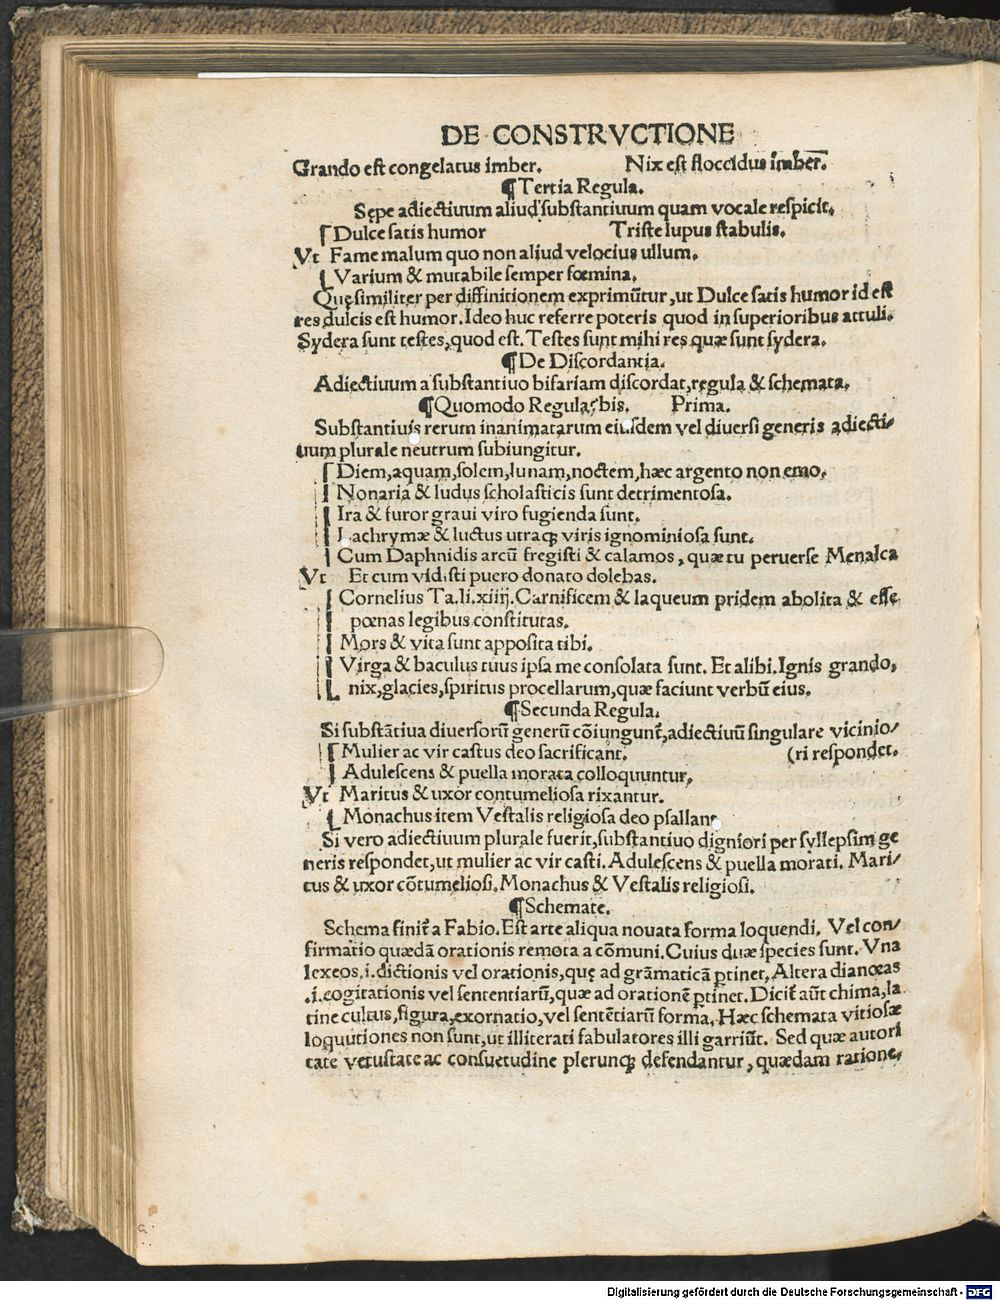 DE CONSTRVCTIONE
Grando eſt congelatus imber. Nix eſt floccidus imber.
¶Tertia Regula.
Sępe adiectiuum aliud ſubſtantiuum quam vocale reſpicit.
Dulce ſatis humor Triſte lupus ſtabulis.
Vt Fame malum quo non aliud velocius ullum.
Varium & mutabile ſemper fœmina.
Quę ſimiliter per diffinitionem exprimūtur, ut Dulce ſatis humor id eſt
res dulcis eſt humor. Ideo huc referre poteris quod in ſuperioribus attuli.
Sydera ſunt teſtes, quod eſt. Teſtes ſunt mihi res quæ ſunt ſydera.
¶De Diſcordantia.
Adiectiuum a ſubſtantiuo bifariam diſcordat, regula & ſchemata.
¶Quomodo Regula, bis. Prima.
Subſtantiuis rerum inanimatarum eiuſdem vel diuerſi generis adiecti/
uum plurale neutrum ſubiungitur.
Diem, aquam, ſolem, lunam, noctem, hæc argento non emo.
Nonaria & ludus ſcholaſticis ſunt detrimentoſa.
Ira & furor graui viro fugienda ſunt.
Lachrymæ & luctus utraqꝫ viris ignominioſa ſunt.
Cum Daphnidis arcū fregiſti & calamos, quæ tu peruerſe Menalca
Vt Et cum vidiſti puero donato dolebas.
Cornelius Ta. li. xiiij. Carnificem & laqueum pridem abolita & eſſe
pœnas legibus conſtitutas.
Mors & vita ſunt appoſita tibi.
Virga & baculus tuus ipſa me conſolata ſunt. Et alibi. Ignis grando,
nix, glacies, ſpiritus procellarum, quæ faciunt verbū eius.
¶Secunda Regula.
Si ſubſtātiua diuerſorū generū cōiungunt̄, adiectiuū ſingulare vicinio/
Mulier ac vir caſtus deo ſacrificant. (ri reſpondet.
Aduleſcens & puella morata colloquuntur.
Vt Maritus & uxor contumelioſa rixantur.
Monachus item Veſtalis religioſa deo pſallant
Si vero adiectiuum plurale fuerit, ſubſtantiuo digniori per ſyllepſim ge
neris reſpondet, ut mulier ac vir caſti. Aduleſcens & puella morati. Mari/
tus & uxor cōtumelioſi. Monachus & Veſtalis religioſi.
¶Schemate.
Schema finit̄ a Fabio. Eſt arte aliqua nouata forma loquendi. Vel con/
firmatio quædā orationis remota a cōmuni. Cuius duæ ſpecies ſunt. Vna
lexeos .i. dictionis vel orationis, quę ad grāmaticā ꝑtinet. Altera dianœas
.i. cogitationis vel ſententiarū, quæ ad orationē ꝑtinet. Dicit̄ aūt chima, la
tine cultus, figura, exornatio, vel ſentētiarū forma. Hæc ſchemata vitioſæ
loquutiones non ſunt, ut illiterati fabulatores illi garriūt. Sed quæ autori
tate vetuſtate ac conſuetudine plerunqꝫ defendantur, quædam ratione,
Digitalisierung gefördert durch die Deutsche Forschungsgemeinschaft - DFG